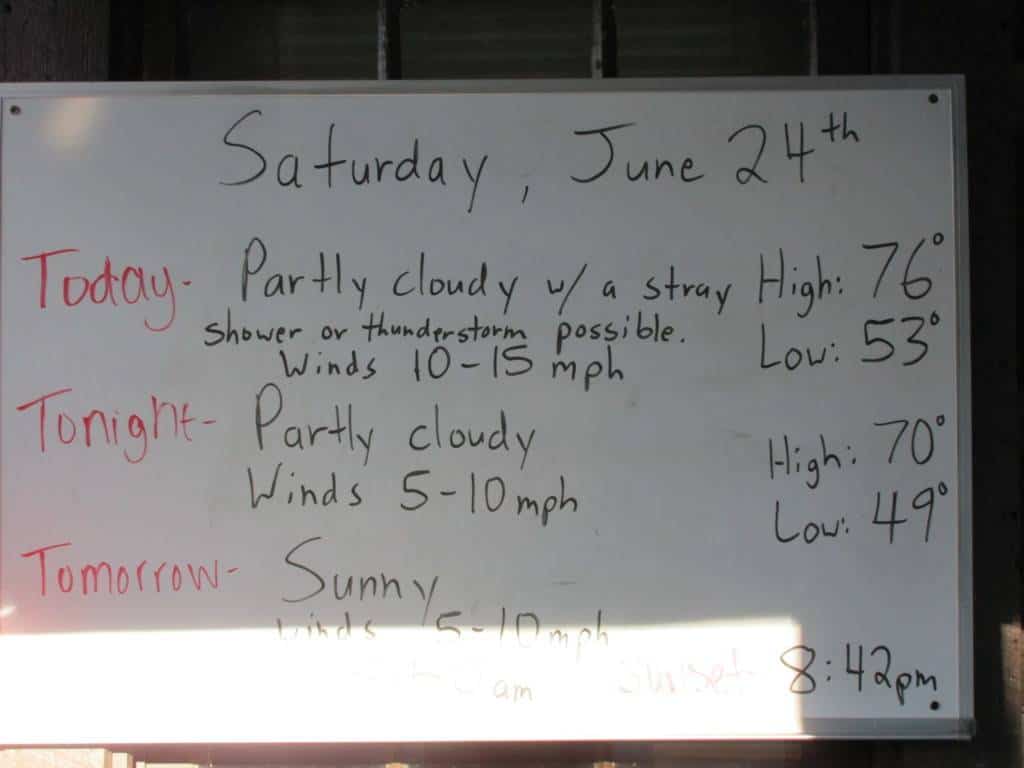 Saturday, June 24th
Today- Partly cloudy w/ a stray High: 76°
shower or thunderstorm possible.
Winds 10-15 mph Low: 53°
Tonight- Partly cloudy High: 70°
Winds 5-10 mph Low: 49°
Tomorrow- Sunny
Winds 5-10 mph
am Sunset 8:42pm